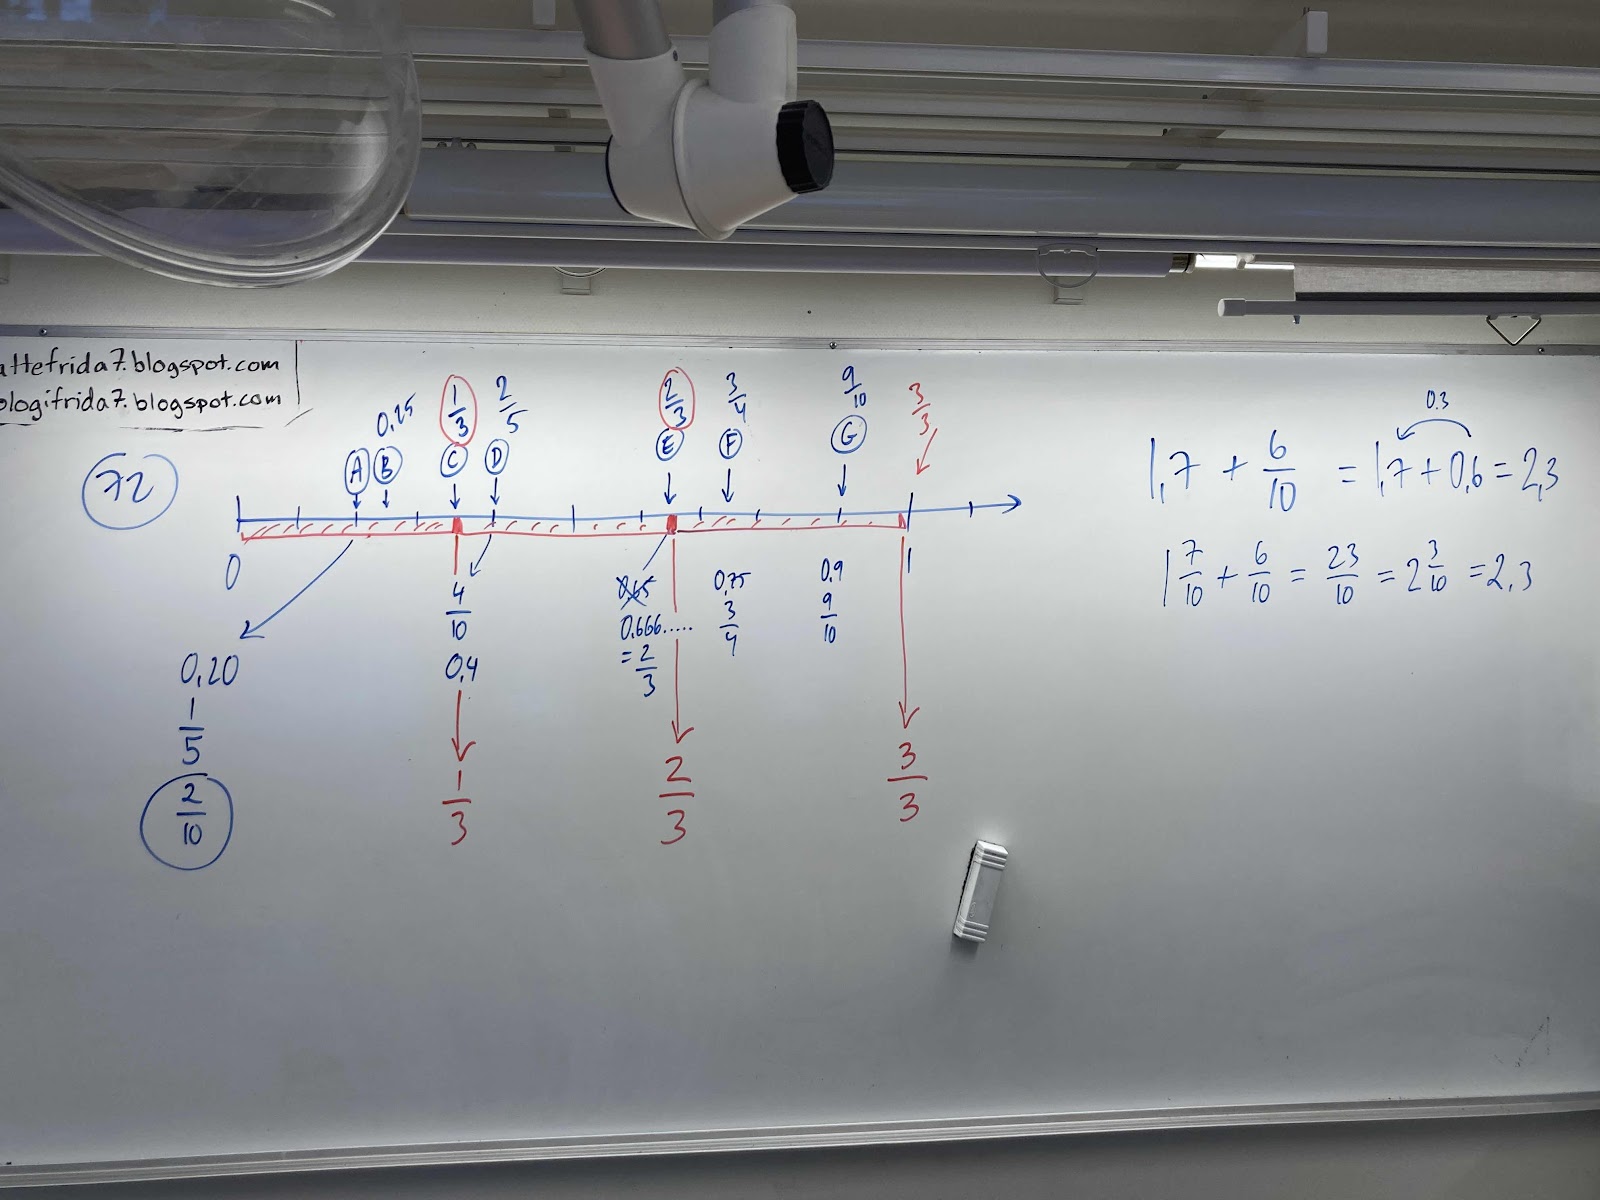 attefrida7.blogspot.com
ologifrida7.blogspot.com
72
0,25 1/3 2/5 2/3 3/4 9/10 3/3
A B C D E F G
0 1
0,20
1/5
2/10
4/10
0,4
1/3
0,65
0,666.....
= 2/3
2/3
0,75
3/4
0,9
9/10
3/3
0.3
1,7 + 6/10 = 1,7 + 0,6 = 2,3
1 7/10 + 6/10 = 23/10 = 2 3/10 = 2,3